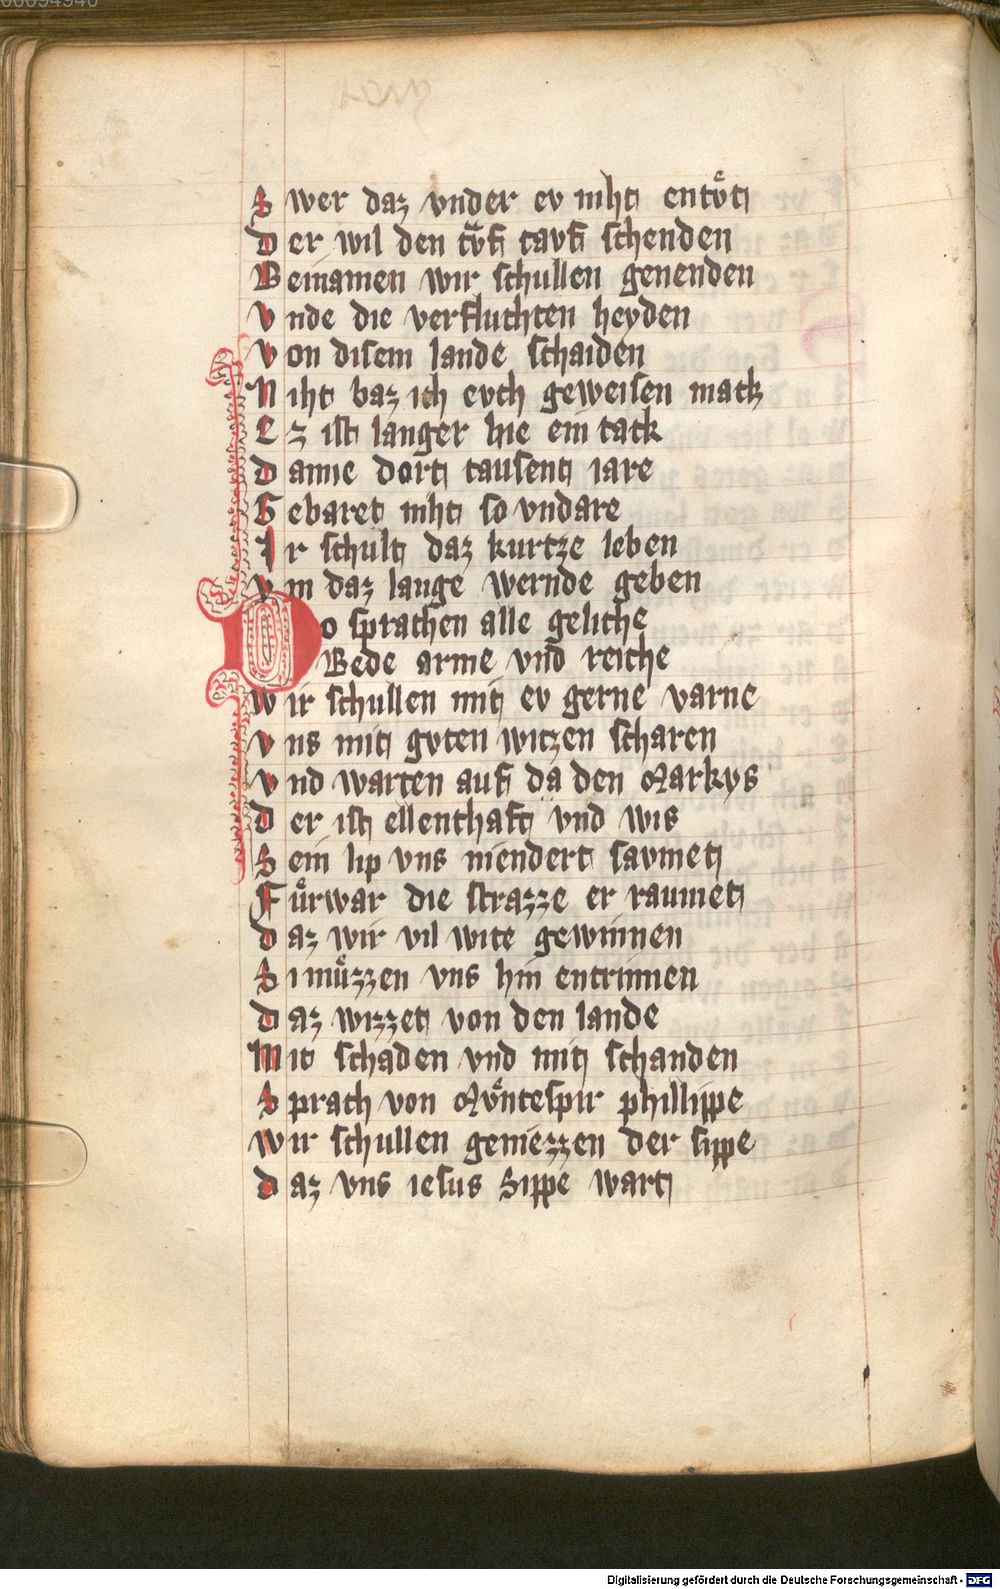 00094946
Swer daz vnder ev niht entv̊t
Der wil den tv̊f tavf schenden
Beinamen wir schullen genenden
Vnde die verfluchten heyden
Von disem lande schaiden
Niht baz ich evch geweisen mack
Ez ist langer hie ein tack
Danne dort tausent iare
Gebaret niht so vndare
Ir schult daz kurtze leben
Vm daz lange wernde geben
Do sprachen alle geliche
Bede arme vnd reiche
Wir schullen mit ev gerne varne
Vns mit gvten witzen scharen
Vnd warten auf da den Markys
Der ist ellenthaft vnd wis
Sein lip vns niendert savmet
Fu̍rwar die strazze er raumet
Daz wir vil wite gewinnen
Si mu̍zzen vns hin entrinnen
Daz wizzet von den lande
Mit schaden vnd mit schanden
Sprach von Mv̍ntespir phillippe
Wir schullen geniezzen der sippe
Daz vns iesus Sippe wart
Digitalisierung gefördert durch die Deutsche Forschungsgemeinschaft - DFG